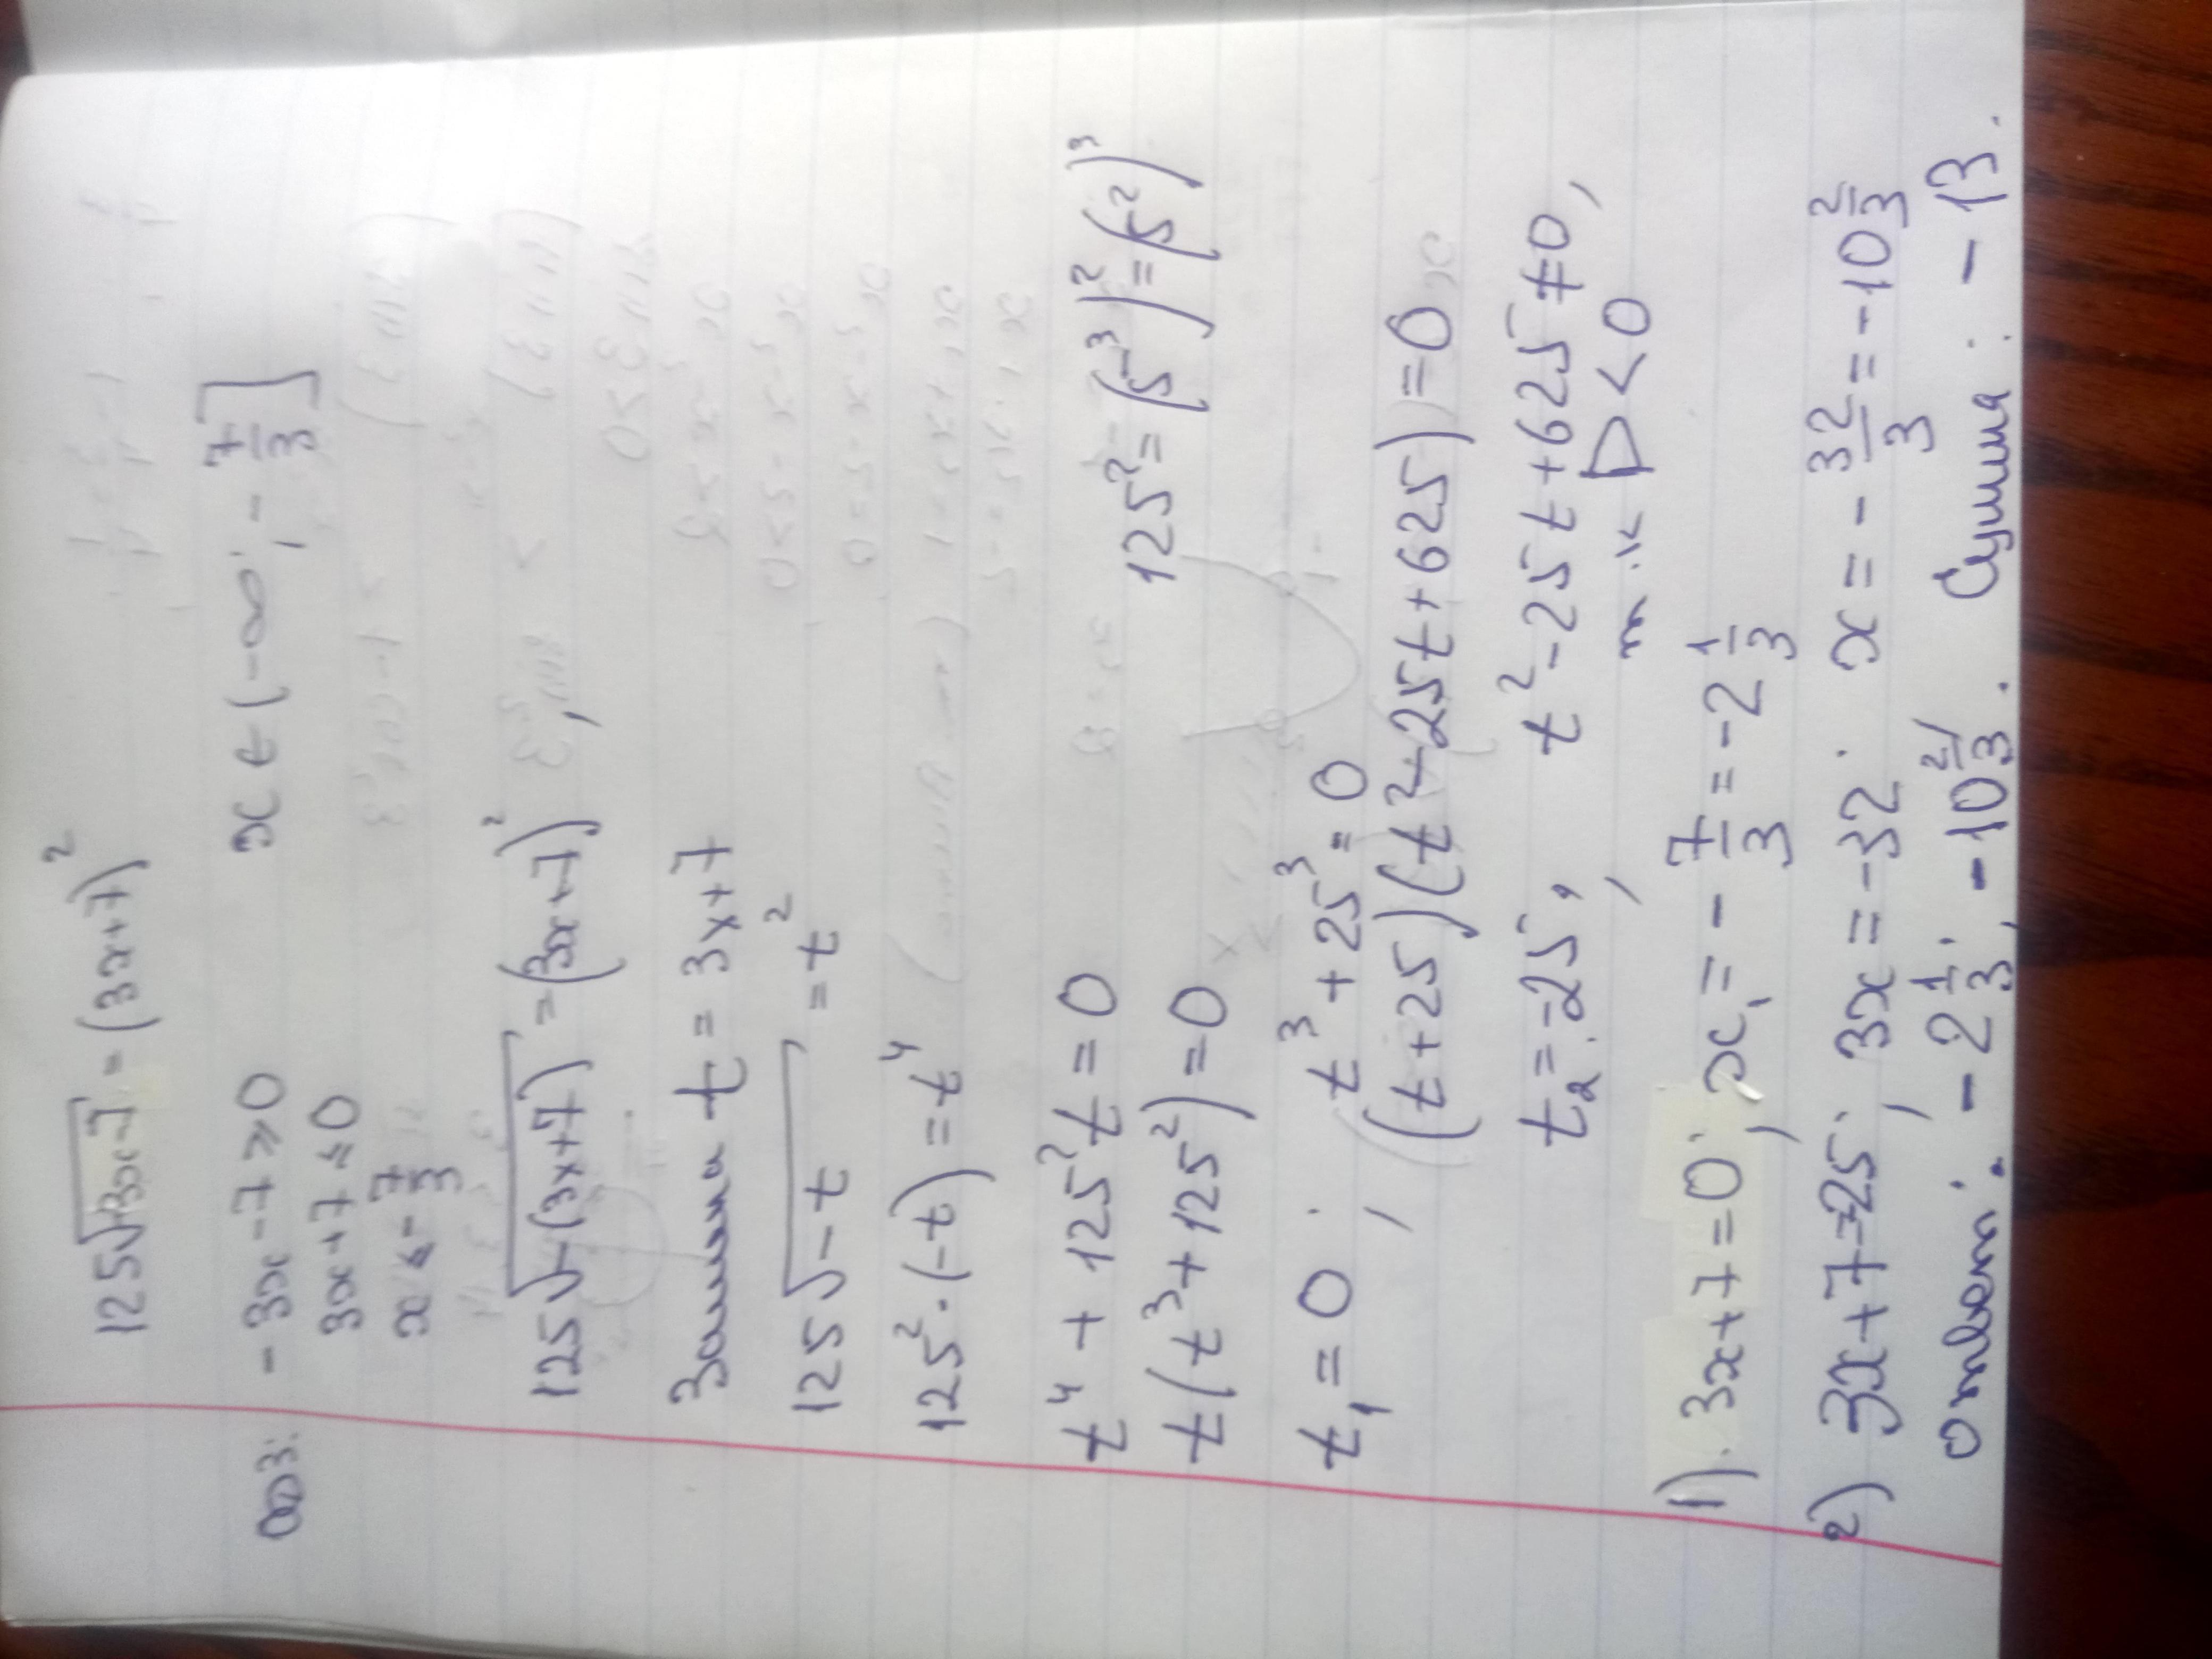 125√-3x-7 = (3x+7)²
ОДЗ: -3x-7 ⩾ 0     x ∈ (-∞; -7/3]
3x+7 ≤ 0
x ≤ -7/3
125√-(3x+7) = (3x+7)²,
Замена t = 3x+7
125√-t = t²
125²·(-t) = t⁴
t⁴ + 125²t = 0
t(t³+125²) = 0     125² = (5³)² = (5²)³
t₁ = 0;     t³+25³ = 0
(t+25)(t²-25t+625) = 0
t₂ = -25,     t²-25t+625 ≠ 0,
т.к D < 0
1). 3x+7=0; x₁ = -7/3 = -2 1/3
2) 3x+7=-25; 3x = -32; x = -32/3 = -10 2/3
Ответ: -2 1/3; -10 2/3. Сумма: -13.